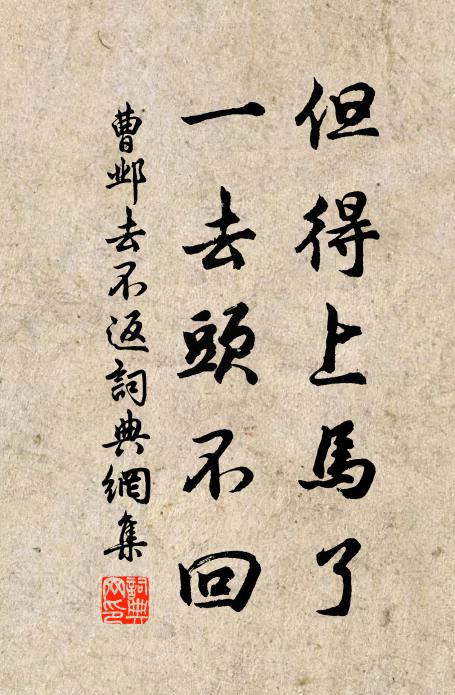 但得上馬了
一去頭不回
曹邺去不返詞典網集
詞典
网印